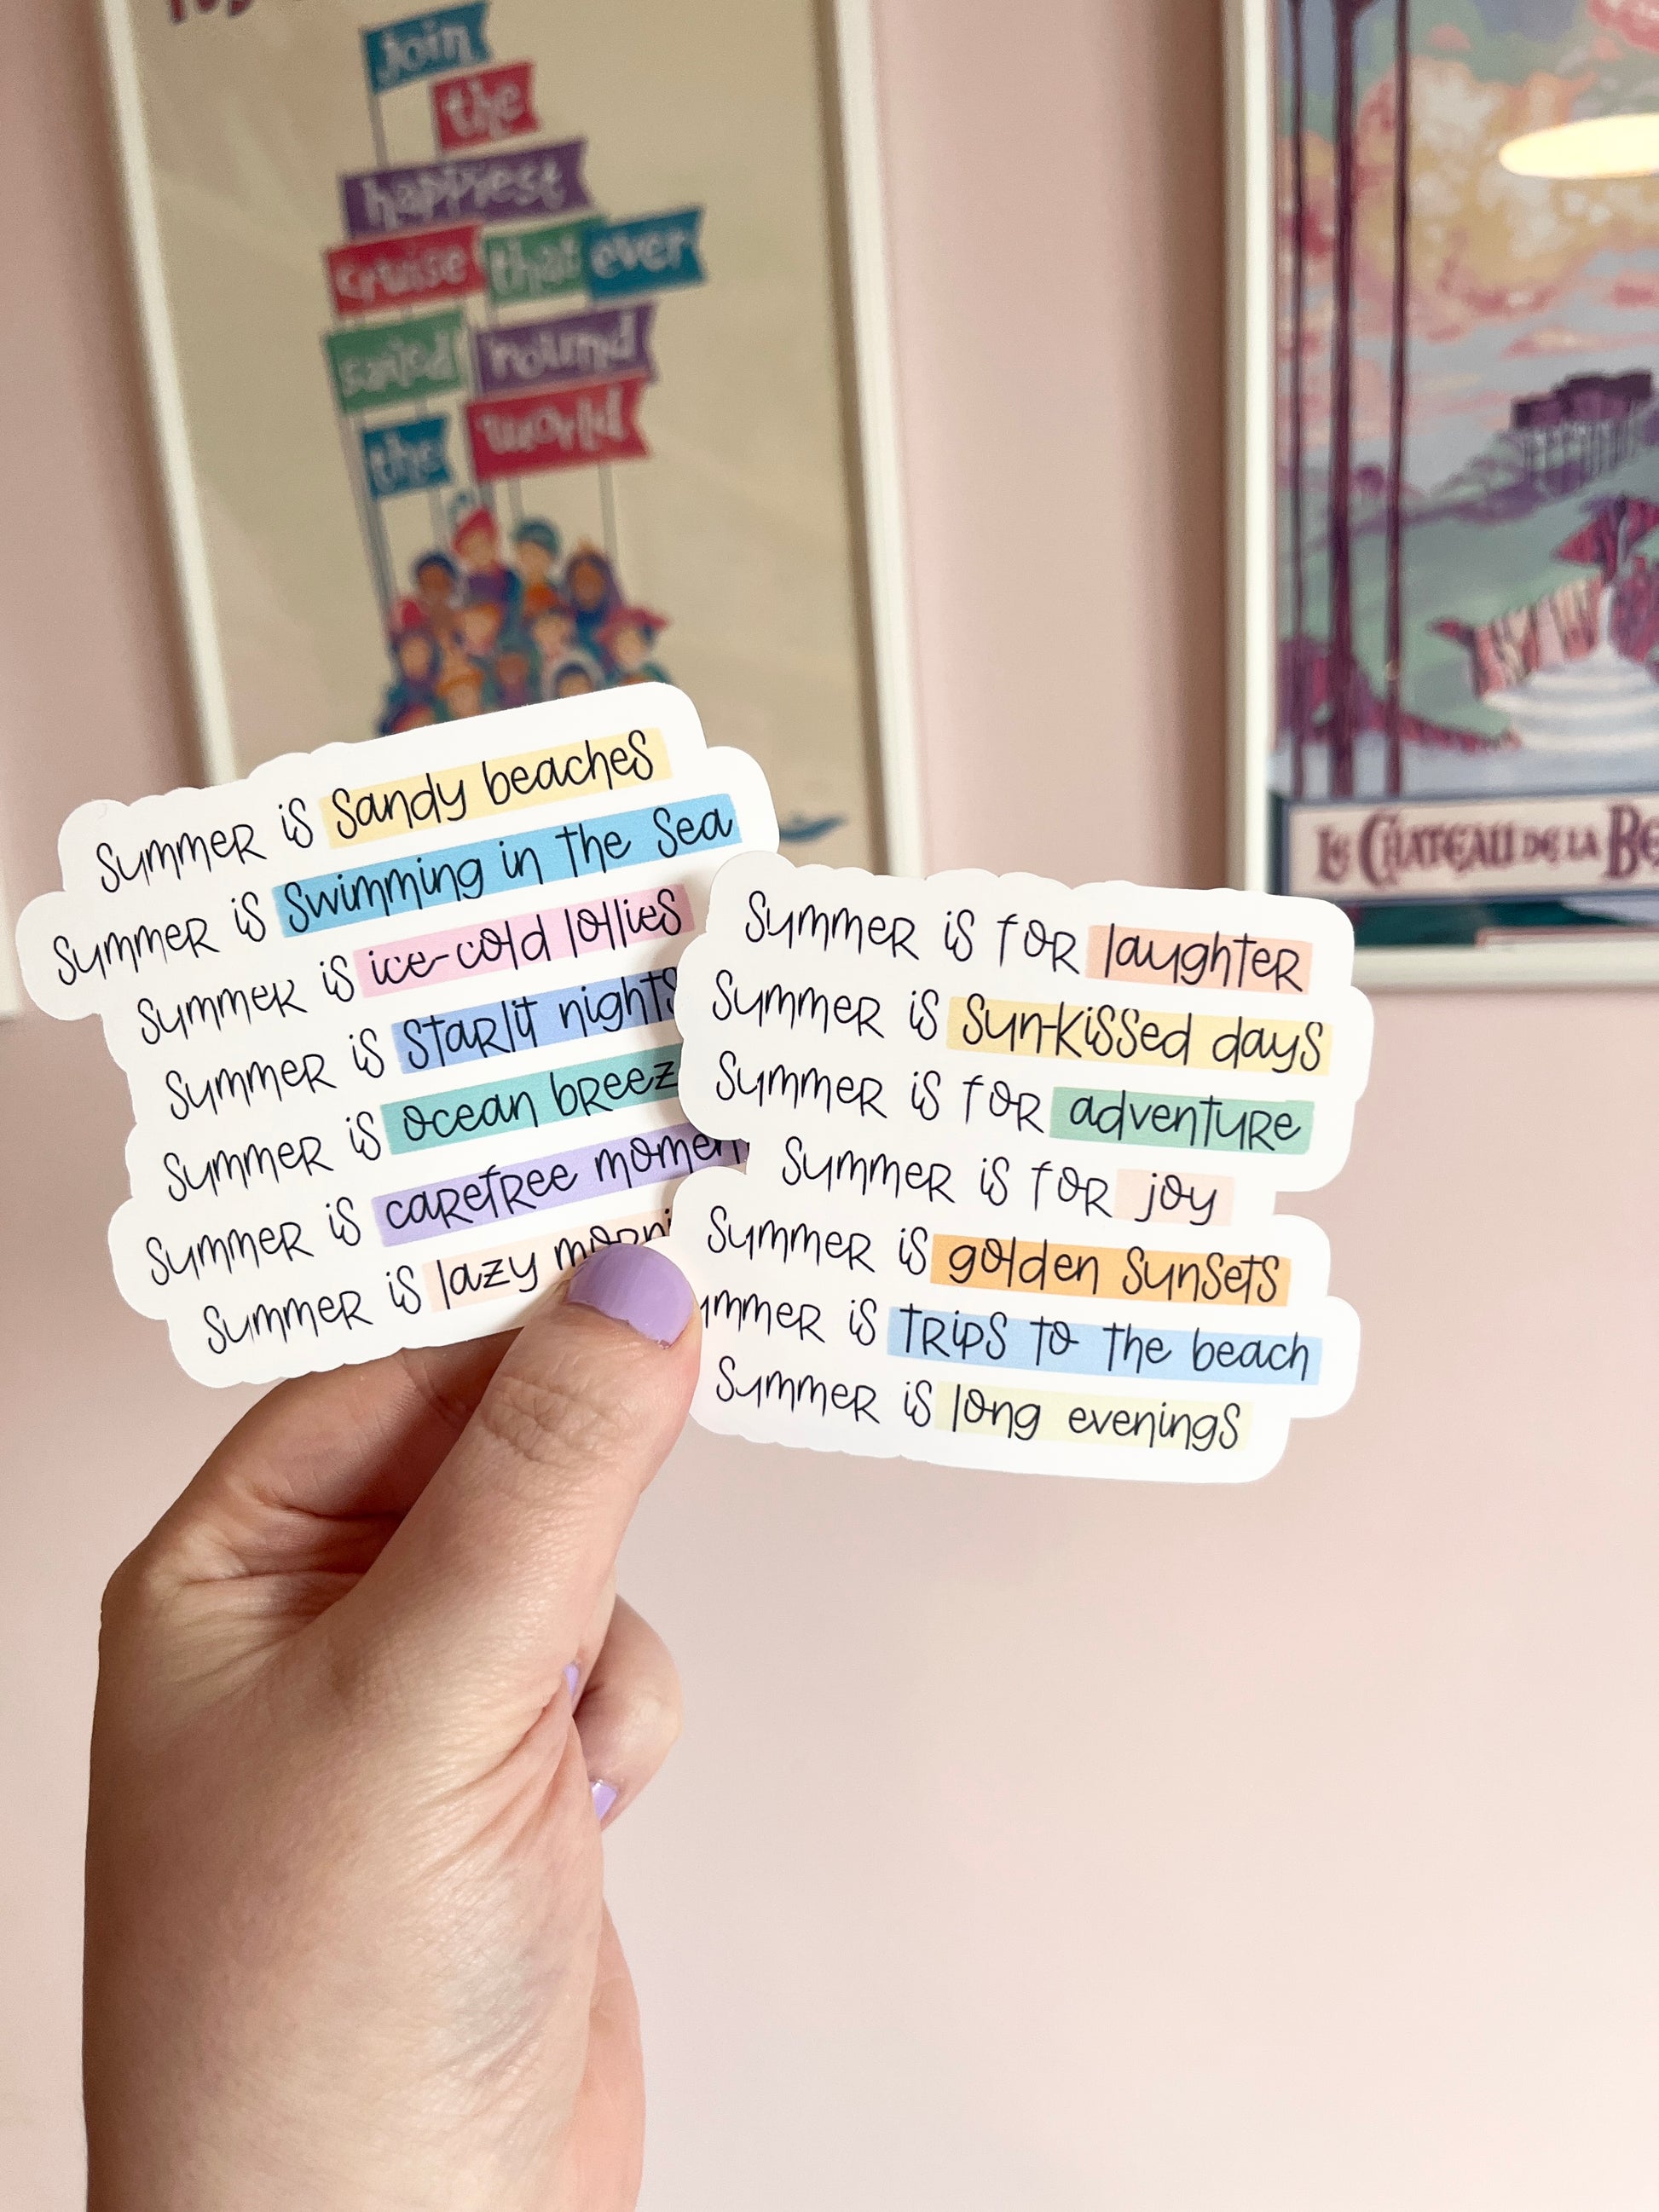 Join
the
happiest
cruise that ever
sailed 'round
the world
Summer is sandy beaches
Summer is swimming in the sea
Summer is ice-cold lollies
Summer is starlit nights
Summer is ocean breez
Summer is carefree momen
Summer is lazy morni
Summer is for laughter
Summer is sun-kissed days
Summer is for adventure
Summer is for joy
Summer is golden sunsets
ummer is trips to the beach
Summer is long evenings
Le Château de la Be